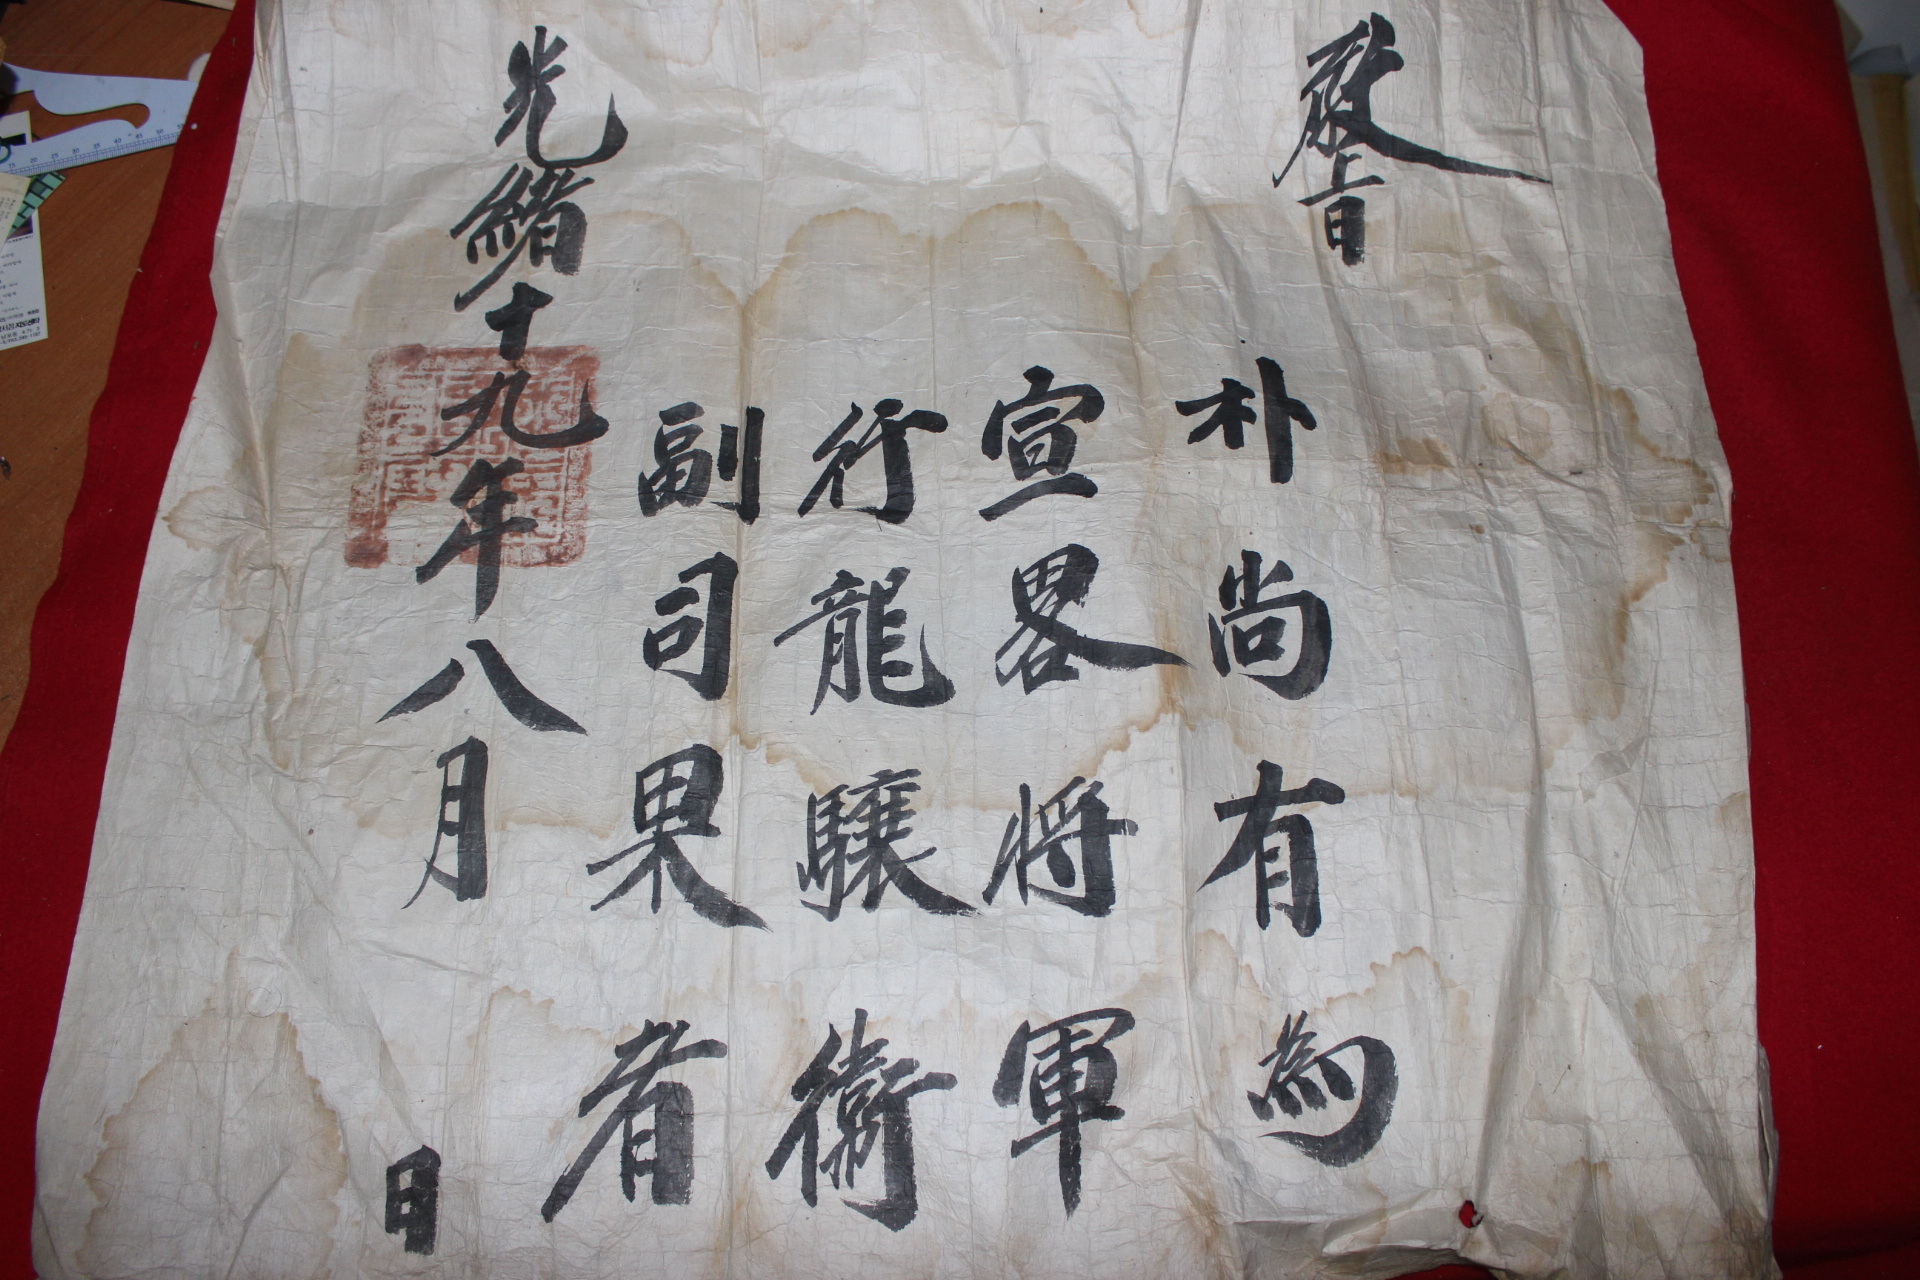 敎旨
朴尚有為
宣畧將軍
行龍驤衛
副司果者
光緒十九年八月 日